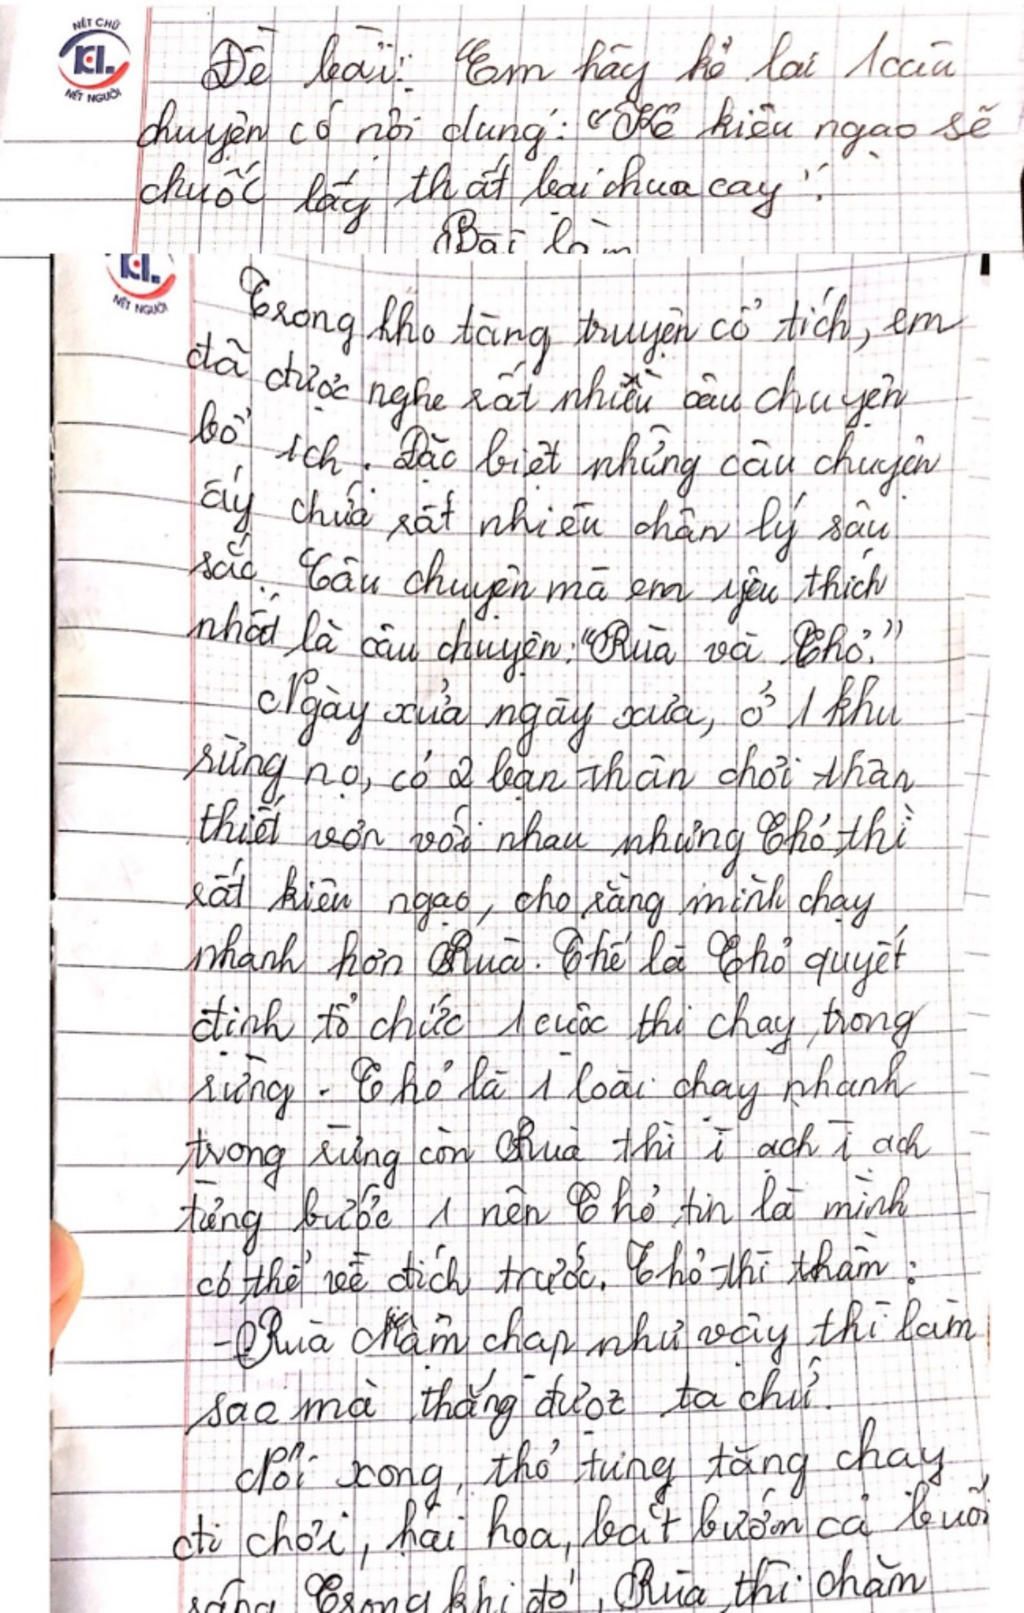 NÉT CHỮ
KL
NÉT NGƯỜI
Đề bài: "Em hãy kể lại 1 câu
chuyện có nội dung: "Kẻ kiêu ngạo sẽ
chuốc lấy thất bại chua cay".
Bài làm
KL
NÉT NGƯỜI
Trong kho tàng truyện cổ tích, em
đã được nghe rất nhiều câu chuyện
bổ ích. Đặc biệt những câu chuyện
ấy chứa rất nhiều chân lý sâu
sắc. Câu chuyện mà em yêu thích
nhất là câu chuyện: "Rùa và Thỏ."
Ngày xửa ngày xưa, ở 1 khu
rừng nọ, có 2 bạn thân chơi thân
thiết với nhau nhưng Thỏ thì
rất kiêu ngạo, cho rằng mình chạy
nhanh hơn Rùa. Thế là Thỏ quyết
định tổ chức 1 cuộc thi chạy trong
rừng. Thỏ là 1 loài chạy nhanh
trong rừng còn Rùa thì ì ạch ì ạch
từng bước 1 nên Thỏ tin là mình
có thể về đích trước. Thỏ thì thầm:
- Rùa chậm chạp như vậy thì làm
sao mà thắng được ta chứ.
Nói xong, thỏ tung tăng chạy
đi chơi, hái hoa, bắt bướm cả buổi
sáng. Trong khi đó, Rùa thì chăm